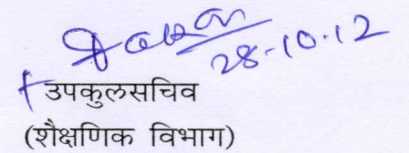 28-10-12
उपकुलसचिव
(शैक्षणिक विभाग)